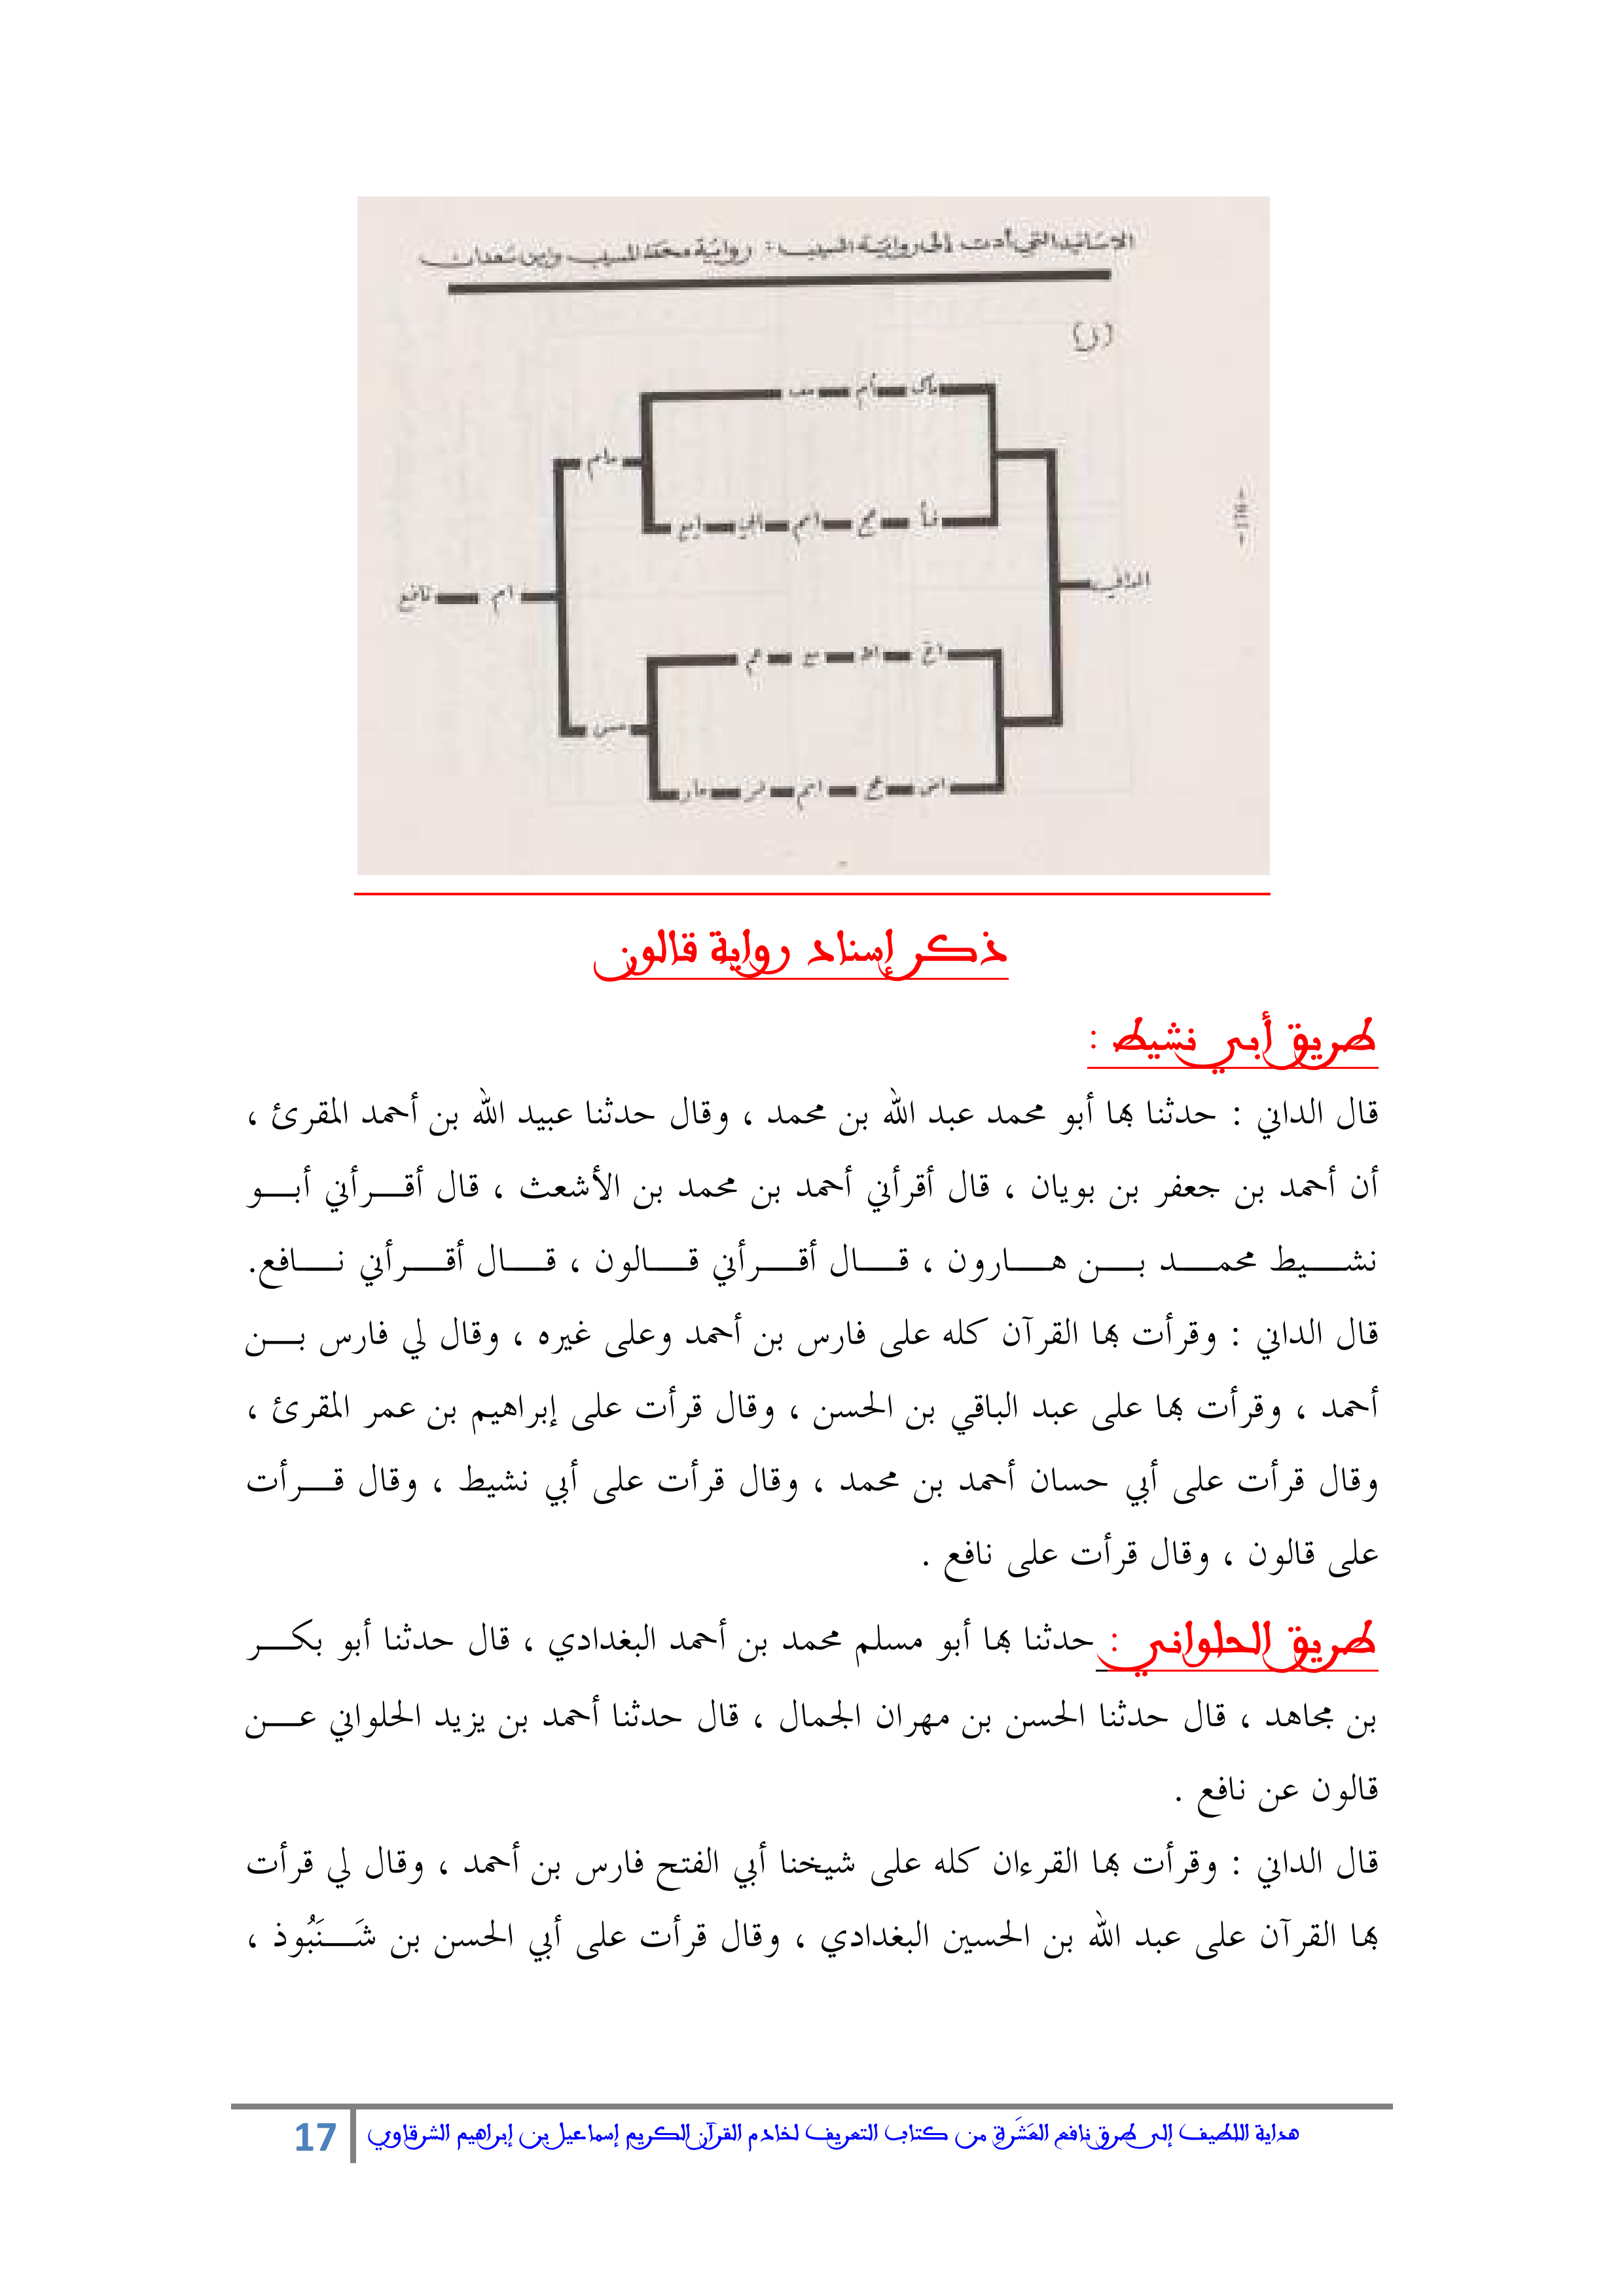 الاسانيد التي أدت إلى رواية المسيب : رواية محمد المسيب وابن سعدان
أم
نأ
اسم
ام
نافع
الداني
ذكر إسناد رواية قالون
طريق أبي نشيط :
قال الداني : حدثنا بها أبو محمد عبد الله بن محمد ، وقال حدثنا عبيد الله بن أحمد المقرئ ،
أن أحمد بن جعفر بن بويان ، قال أقرأني أحمد بن محمد بن الأشعث ، قال أقرأني أبو
نشيط محمد بن هارون ، قال أقرأني قالون ، قال أقرأني نافع.
قال الداني : وقرأت بها القرآن كله على فارس بن أحمد وعلى غيره ، وقال لي فارس بن
أحمد ، وقرأت بها على عبد الباقي بن الحسن ، وقال قرأت على إبراهيم بن عمر المقرئ ،
وقال قرأت على أبي حسان أحمد بن محمد ، وقال قرأت على أبي نشيط ، وقال قرأت
على قالون ، وقال قرأت على نافع .
طريق الحلواني : حدثنا بها أبو مسلم محمد بن أحمد البغدادي ، قال حدثنا أبو بكر
بن مجاهد ، قال حدثنا الحسن بن مهران الجمال ، قال حدثنا أحمد بن يزيد الحلواني عن
قالون عن نافع .
قال الداني : وقرأت بها القرءان كله على شيخنا أبي الفتح فارس بن أحمد ، وقال لي قرأت
بها القرآن على عبد الله بن الحسين البغدادي ، وقال قرأت على أبي الحسن بن شَنَبُوذ ،
هداية اللطيف إلى طرق نافع العَشَرةِ من كتاب التعريف لخادم القرآن الكريم إسماعيل بن إبراهيم الشرقاوي
17